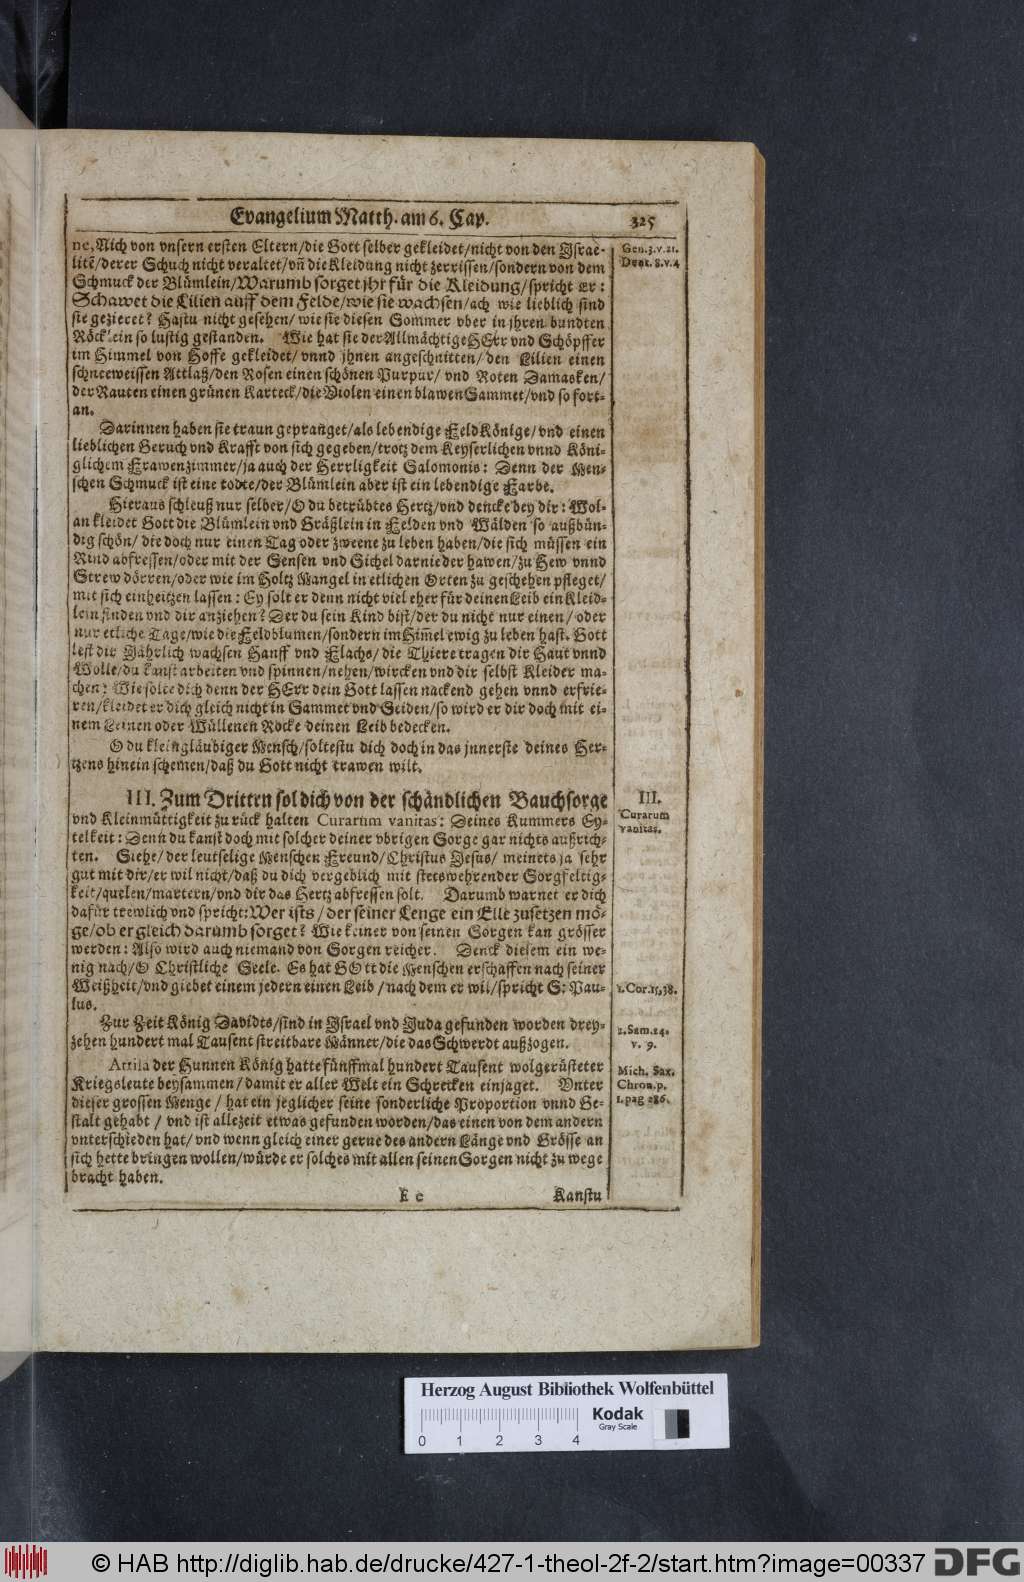 Evangelium Matth. am 6. Cap. 325
ne. Nich von vnsern ersten Eltern/die Gott selber gekleidet/nicht von den Israe-
litẽ/derer Schuch nicht veraltet/vñ die Kleidung nicht zerrissen/sondern von dem
Schmuck der Blümlein/Warumb sorget jhr für die Kleidung/spricht Er:
Schawet die Lilien auff dem Felde/wie sie wachsen/ach wie lieblich sind
sie gezieret? Hastu nicht gesehen/wie sie diesen Sommer vber in jhren bundten
Röcklein so lustig gestanden. Wie hat sie der Allmächtige HErr vnd Schöpffer
im Himmel von Hoffe gekleidet/vnnd jhnen angeschnitten/den Lilien einen
schneeweissen Attlaß/den Rosen einen schönen Purpur/vnd Roten Damasken/
der Rauten einen grünen Karteck/die Violen einen blawen Sammet/vnd so fort-
an.
Darinnen haben sie traun gepranget/als lebendige FeldKönige/vnd einen
lieblichen Geruch vnd Krafft von sich gegeben/trotz dem Keyserlichen vnnd Köni-
glichem Frawenzimmer/ja auch der Herrligkeit Salomonis: Denn der Men-
schen Schmuck ist eine todte/der Blümlein aber ist ein lebendige Farbe.
Hieraus schleuß nur selber/O du betrübtes Hertz/vnd dencke bey dir: Wol-
an kleidet Gott die Blümlein vnd Gräßlein in Felden vnd Wälden so außbün-
dig schön/die doch nur einen Tag oder zweene zu leben haben/die sich müssen ein
Rind abfressen/oder mit der Sensen vnd Sichel darnieder hawen/zu Hew vnnd
Strew dörren/oder wie im Holtz Mangel in etlichen Orten zu geschehen pfleget/
mit sich einheitzen lassen: Ey solt er denn nicht viel eher für deinen Leib ein Kleid-
lein finden vnd dir anziehen? Der du sein Kind bist/der du nicht nur einen/oder
nur etliche Tage/wie die Feldblumen/sondern im Him̃el ewig zu leben hast. Gott
lest dir Jährlich wachsen Hanff vnd Flachs/die Thiere tragen dir Haut vnnd
Wolle/du kanst arbeiten vnd spinnen/nehen/wircken vnd dir selbst Kleider ma-
chen: Wie solte dich denn der HErr dein Gott lassen nackend gehen vnnd erfrie-
ren/kleidet er dich gleich nicht in Sammet vnd Seiden/so wird er dir doch mit ei-
nem Leinen oder Wüllenen Rocke deinen Leib bedecken.
O du kleingläubiger Mensch/soltestu dich doch in das jnnerste deines Her-
tzens hinein schemen/daß du Gott nicht trawen wilt.
III. Zum Dritten sol dich von der schändlichen Bauchsorge
vnd Kleinmüttigkeit zu rück halten Curarum vanitas: Deines Kummers Ey-
telkeit: Denn du kanst doch mit solcher deiner vbrigen Sorge gar nichts außrich-
ten. Siehe/der leutselige Menschen Freund/Christus Jesus/meinets ja sehr
gut mit dir/er wil nicht/daß du dich vergeblich mit stetswehrender Sorgfeltig-
keit/quelen/martern/vnd dir das Hertz abfressen solt. Darumb warnet er dich
dafür trewlich vnd spricht: Wer ists/der seiner Lenge ein Elle zusetzen mö-
ge/ob er gleich darumb sorget? Wie keiner von seinen Sorgen kan grösser
werden: Also wird auch niemand von Sorgen reicher. Denck diesem ein we-
nig nach/O Christliche Seele. Es hat GOtt die Menschen erschaffen nach seiner
Weißheit/vnd giebet einem jedern einen Leib/nach dem er wil/spricht S. Pau-
lus.
Zur Zeit König Davidts/sind in Israel vnd Juda gefunden worden drey-
zehen hundert mal Tausent streitbare Männer/die das Schwerdt außzogen.
Attila der Hunnen König hatte fünffmal hundert Tausent wolgerüsteter
Kriegsleute beysammen/damit er aller Welt ein Schrecken einjaget. Vnter
dieser grossen Menge/hat ein jeglicher seine sonderliche Proportion vnnd Ge-
stalt gehabt/vnd ist allezeit etwas gefunden worden/das einen von dem andern
vnterschieden hat/vnd wenn gleich einer gerne des andern Länge vnd Grösse an
sich hette bringen wollen/würde er solches mit allen seinen Sorgen nicht zu wege
bracht haben.
E e Kanstu
Gen. 3. v. 21.
Deut. 8. v. 4
III.
Curarum
vanitas.
1. Cor. 15, 38.
2. Sam. 24.
v. 9.
Mich. Sax.
Chron. p.
1. pag 286.
Herzog August Bibliothek Wolfenbüttel
Kodak
Gray Scale
0 1 2 3 4
© HAB http://diglib.hab.de/drucke/427-1-theol-2f-2/start.htm?image=00337
DFG